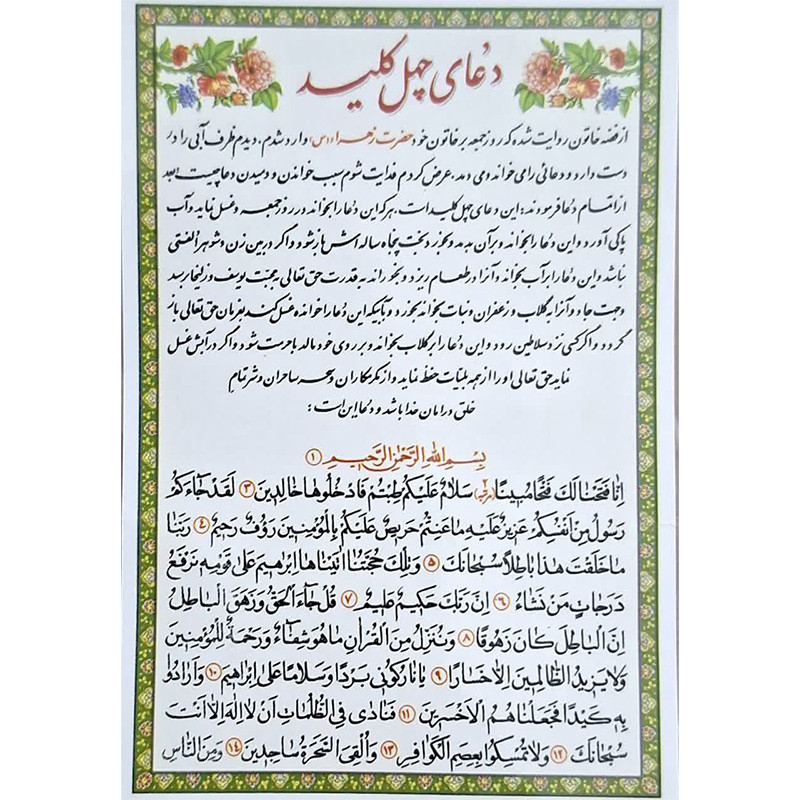 دعای چهل کلید
از فضه خاتون روایت شده که روز جمعه بر خاتون خود حضرت زهرا (س) وارد شدم، دیدم ظرف آبی را در
دست دارد و دعائی را می خواند و می دمد، عرض کردم فدایت شوم سبب خواندن و دمیدن دعا چیست بعد
از اتمام دعا فرمودند: این دعای چهل کلید است، هر که این دعا را بخواند و در روز جمعه و غسل نماید و آب
پاکی آورد و این دعا را بخواند و بر آن بدمد و بخورد بخت پنجاه ساله اش باز شود و اگر در بین زن و شوهر الفتی
نباشد و این دعا را بر آب بخواند و آنرا در طعام ریزد و بخوراند به قدرت حق تعالی به محبت یوسف و زلیخا برسد
و جهت جادو آنرا به گلاب و زعفران و نبات بخواند بخورد و با آبیکه این دعا را خوانده غسل کند بفرمان حق تعالی باز
گردد و اگر کسی نزد سلاطین رود و این دعا را بر گلاب بخواند و بر روی خود مالد با حرمت شود و اگر در آبش غسل
نماید حق تعالی او را از همه بلیات حفظ نماید و از مکر مکاران و سحر ساحران و شر تمام
خلق در امان خدا باشد و دعا این است:
بسم الله الرحمن الرحیم ۱
إنا فتحنا لك فتحا مبينا ۲ سلام عليكم طبتم فادخلوها خالدين ۳ لقد جاءكم
رسول من أنفسكم عزيز عليه ما عنتم حريص عليكم بالمؤمنين رؤف رحيم ۴ ربنا
ما خلقت هذا باطلا سبحانك ۵ وتلك حجتنا اتيناها ابرهيم على قومه نرفع
درجات من نشاء ۶ إن ربك حكيم عليم ۷ قل جاء الحق وزهق الباطل
إن الباطل كان زهوقا ۸ وننزل من القرآن ما هو شفاء ورحمة للمؤمنين
ولا يزيد الظالمين إلا خسارا ۹ يا نار كوني بردا وسلاما على ابراهيم ۱۰ وأرادوا
به كيدا فجعلناهم الأخسرين ۱۱ فنادى في الظلمات أن لا اله الا انت
سبحانك ۱۲ ولا تمسكوا بعصم الكوافر ۱۳ وألقي السحرة ساجدين ۱۴ ومن الناس